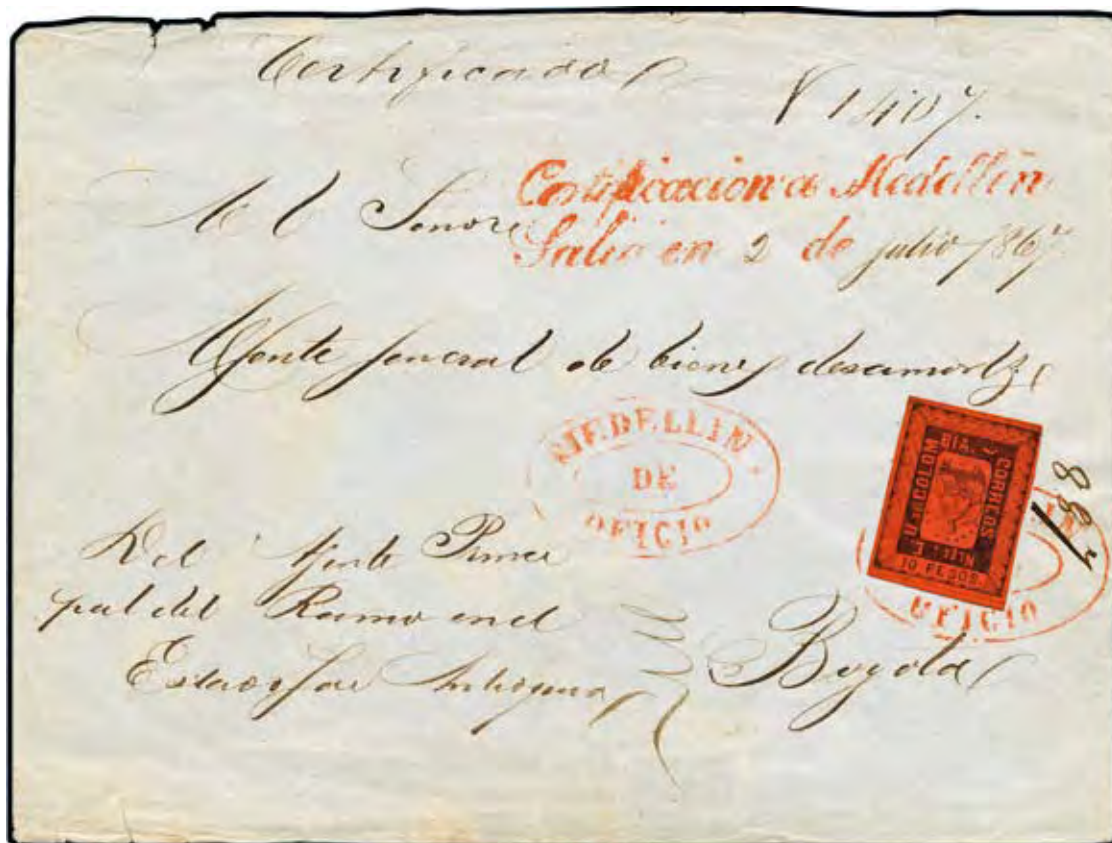 Certificado
1407.
Certificacion a Medellin
Salio en 2 de julio 1867
Al Senor
Ajente jeneral de bienes desamortz
MEDELLIN
DE
OFICIO
E. U. DE COLOMBIA.
CORREOS
10 PESOS
OFICIO
Del Ajente Princi
pal del Ramo en el
Estado
Antioquia
Bogotá